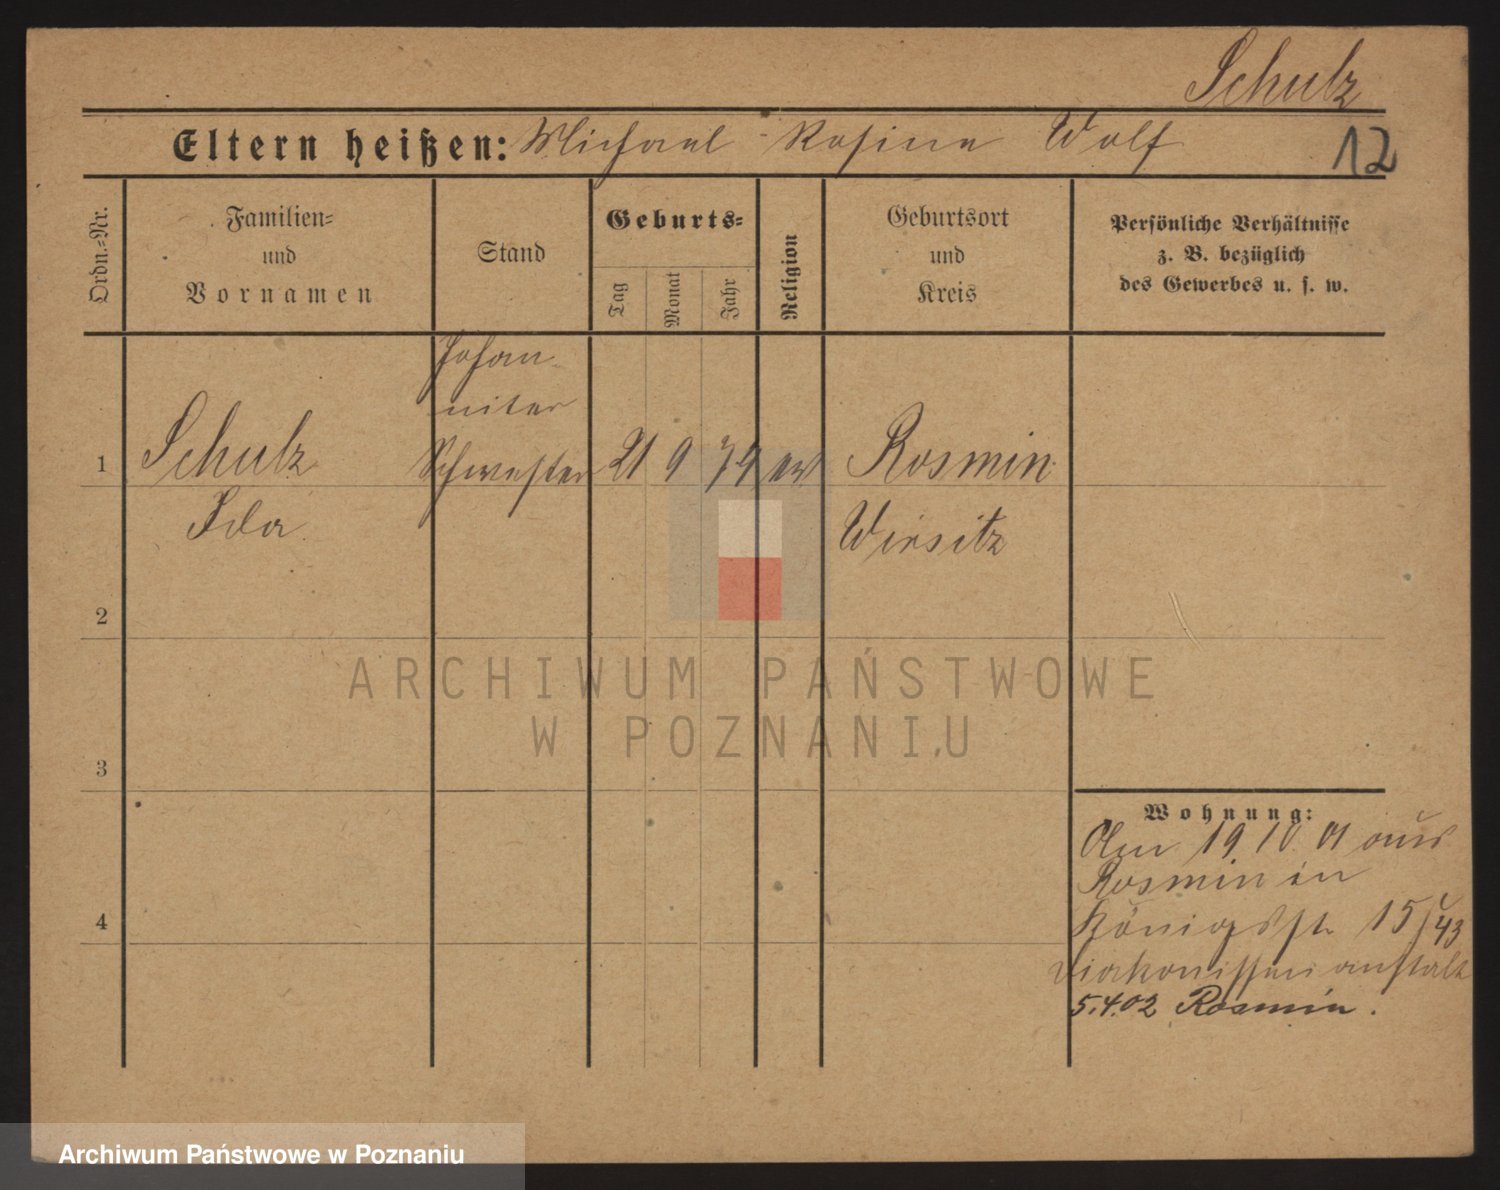 Schulz
Eltern heißen: Michael Rosina Wolf
12
Ordn.-Nr.
Familien-
und
Vornamen
Stand
Geburts-
Tag
Monat
Jahr
Religion
Geburtsort
und
Kreis
Persönliche Verhältnisse
z. B. bezüglich
des Gewerbes u. s. w.
1
Schulz
Ida
Johan-
niter
Schwester
21 9 79 ev
Rosmin
Wirsitz
2
3
4
ARCHIWUM PAŃSTWOWE
W POZNANIU
Wohnung:
Am 19 10 01 aus
Rosmin in
Königstr. 15 / 43
Diakonissen anstalt
5.4.02 Rosmin.
Archiwum Państwowe w Poznaniu